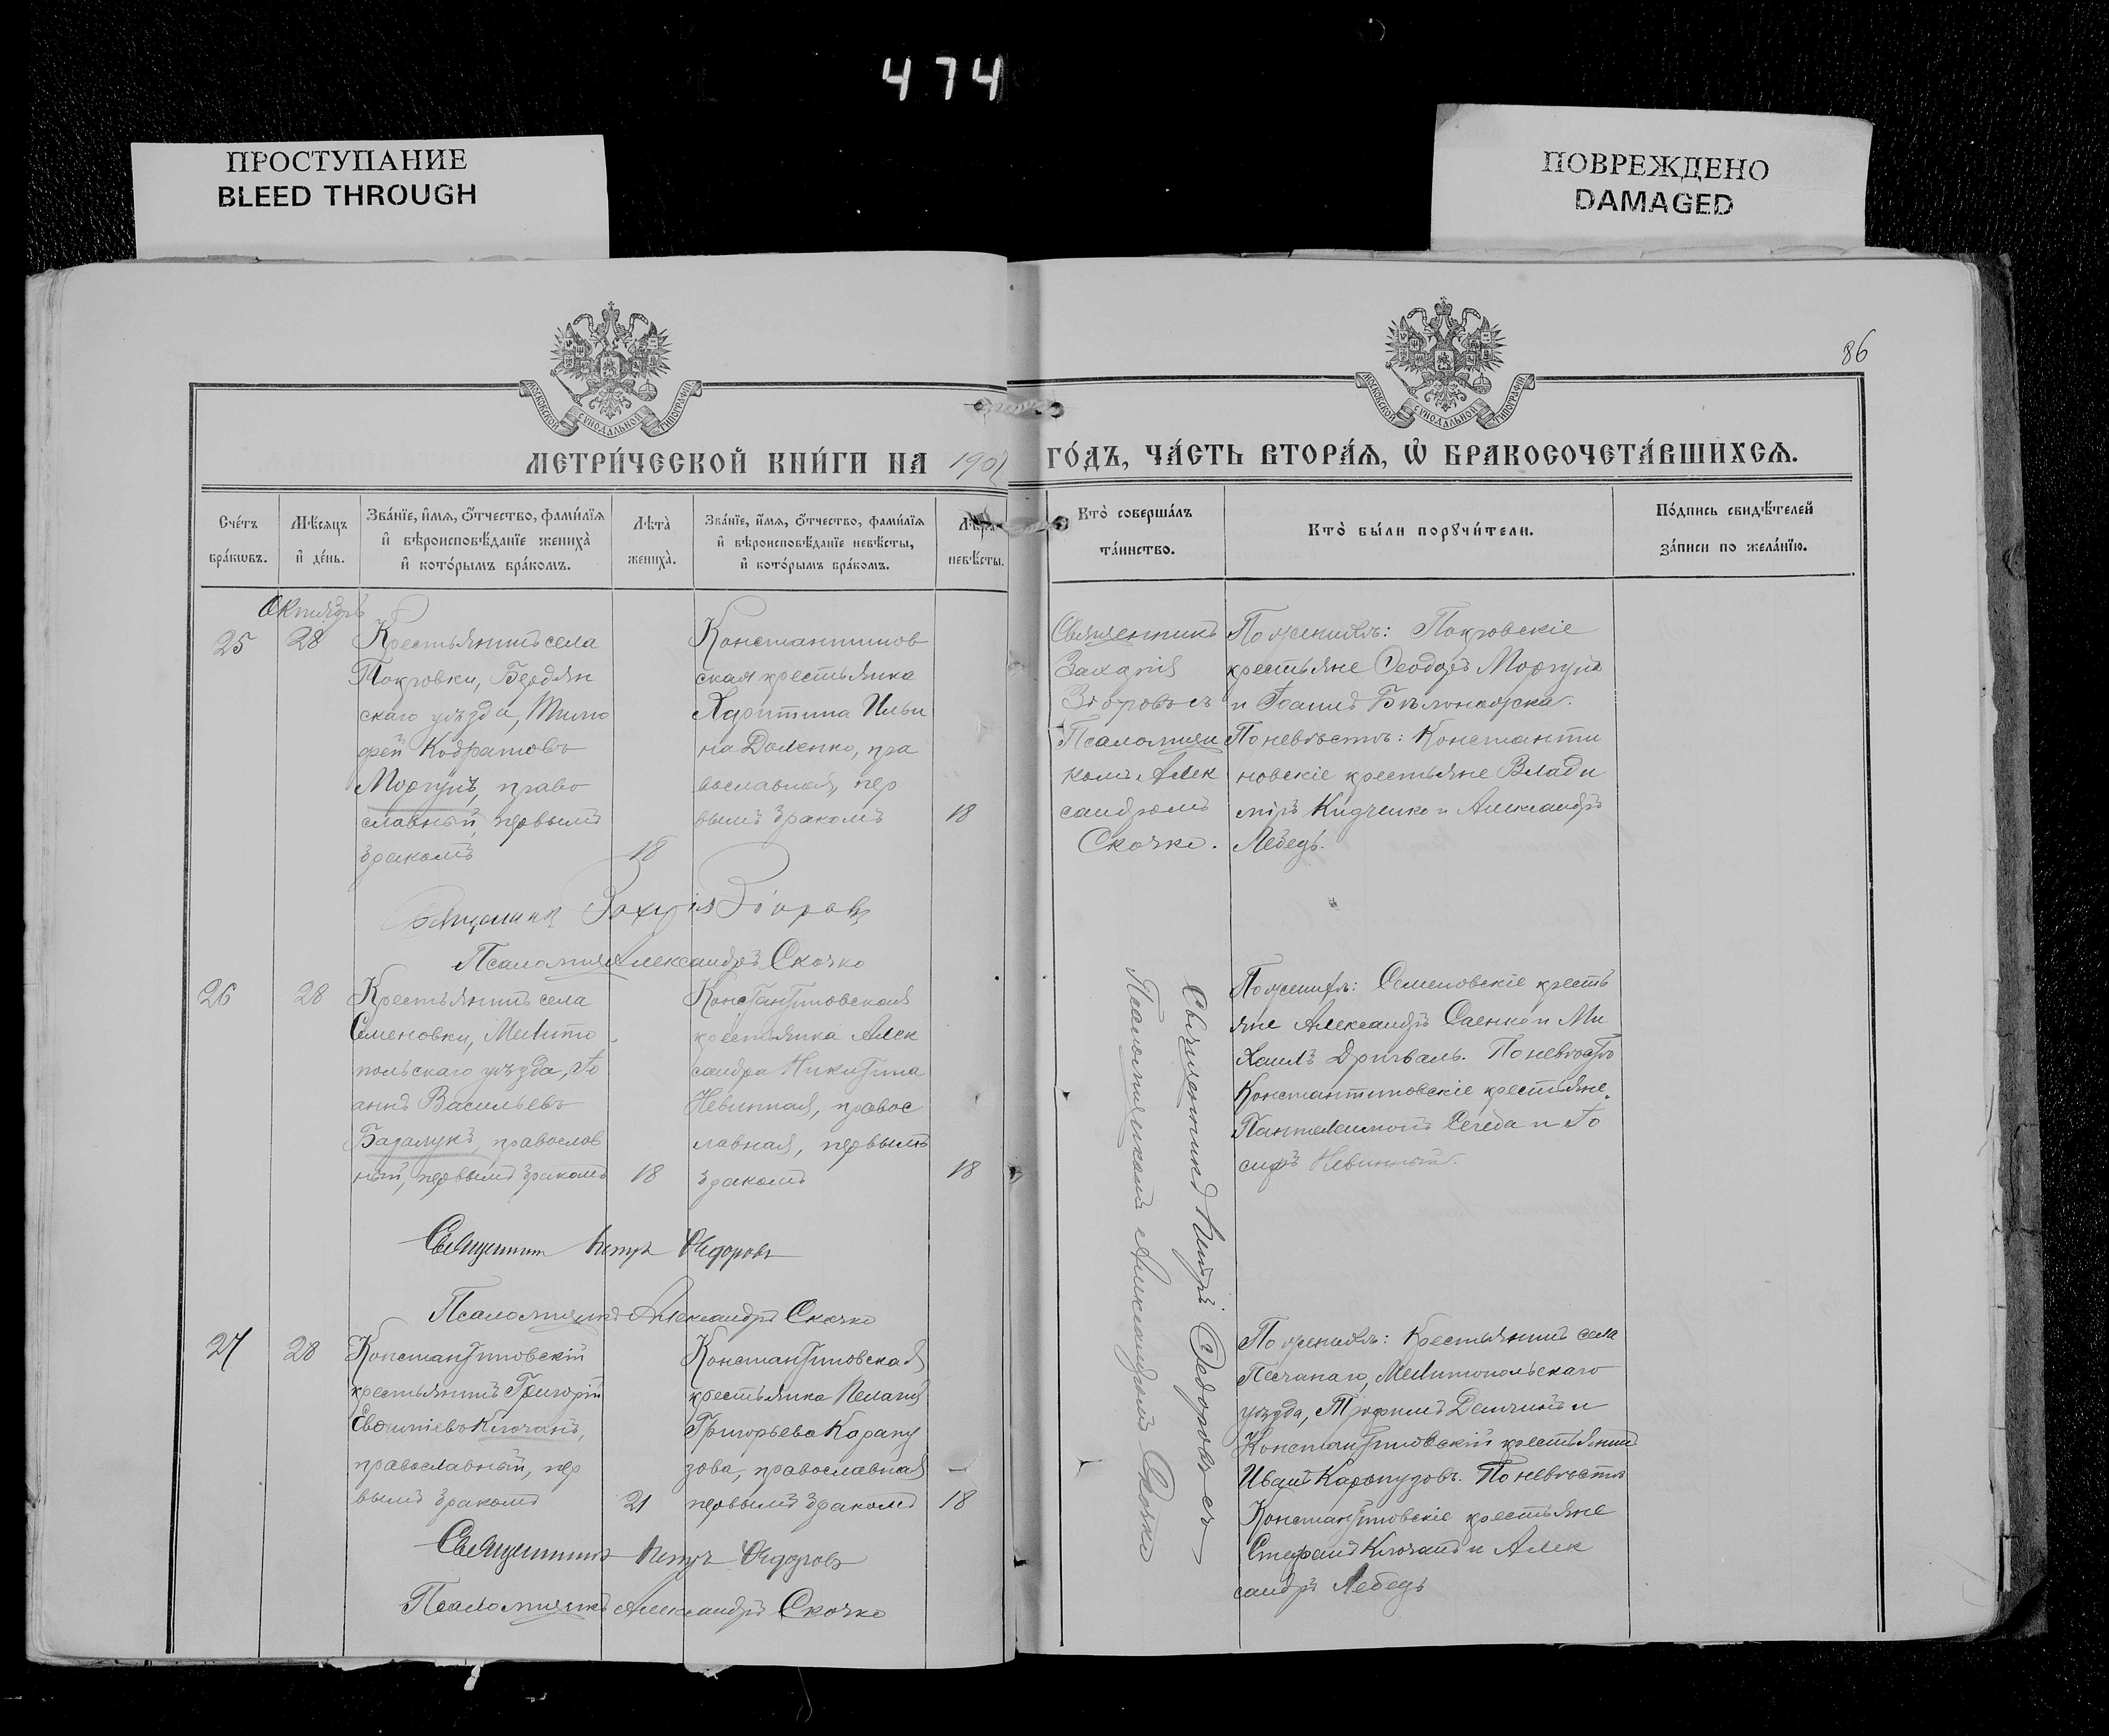 474
ПРОСТУПАНИЕ
BLEED THROUGH
ПОВРЕЖДЕНО
DAMAGED
86
МОСКОВСКОЙ СѴНОДАЛЬНОЙ ТИПОГРАФІИ
МОСКОВСКОЙ СѴНОДАЛЬНОЙ ТИПОГРАФІИ
МЕТРИ́ЧЕСКОЙ КНИ́ГИ НА 190
ГО́ДЪ, ЧА́СТЬ ВТОРА́Ѧ, Ѽ БРАКОСОЧЕТА́ВШИХСѦ.
Сче́тъ
бра́кѡвъ.
Мѣ́сѧцъ
и҆ де́нь.
Зва́нїе, и҆́мѧ, ѻ҆́тчество, фами́лїѧ
и҆ вѣроисповѣ́данїе жениха̀
и҆ кото́рымъ бра́комъ.
Лѣта̀
жениха̀.
Зва́нїе, и҆́мѧ, ѻ҆́тчество, фами́лїѧ
и҆ вѣроисповѣ́данїе невѣ́сты,
и҆ кото́рымъ бра́комъ.
Лѣта̀
невѣ́сты.
Кто̀ соверша́лъ
та́инство.
Кто̀ бы́ли порꙋчи́тели.
По́дпись свидѣ́телей
за́писи по жела́нїю.
Октябрь
25
28
Крестьянинъ села
Покровки, Бердян
скаго уѣзда, Тимо
фей Кодратовъ
Моргунъ, право
славный, первымъ
бракомъ
18
Константинов
ская крестьянка
Харитина Ильи
на Доленко, пра
вославная, пер
вымъ бракомъ
18
Священникъ
Захарія
Згоровъ съ
Псаломщи
комъ Алек
сандромъ
Скочко.
По женихѣ: Покровскіе
крестьяне Ѳеодоръ Моргунъ
и Іоаннъ
По невѣстѣ: Константи
новскіе крестьяне Влади
міръ Кидченко и Александръ
Лебедь.
Священникъ Захарія Згоровъ
Псаломщикъ Александръ Скочко
26
28
Крестьянинъ села
Семеновки, Мелито
польскаго уѣзда, Іо
аннъ Васильевъ
Баралукъ, православ
ный, первымъ бракомъ
18
Константиновская
крестьянка Алек
сандра Никитина
Невинная, правос
лавная, первымъ
бракомъ
18
Священникъ Петръ Ѳедоровъ съ
Псаломщикомъ Александромъ Скочко
По женихѣ: Семеновскіе кресть
яне Александръ Саенко и Ми
хаилъ Дригваль. По невѣстѣ
Константиновскіе крестьяне
Пантелеимонъ Середа и Іо
сифъ Невинный.
Священникъ Петръ Ѳедоровъ
Псаломщикъ Александръ Скочко
27
28
Константиновскій
крестьянинъ Григорій
Евфиміевъ Клочанъ,
православный, пер
вымъ бракомъ
21
Константиновская
крестьянка Пелагія
Григорьева Карапу
зова, православная
первымъ бракомъ
18
По женихѣ: Крестьянинъ села
Песчанаго, Мелитопольскаго
уѣзда, Трофимъ Демчинъ и
Константиновскій крестьянинъ
Иванъ Карапузовъ. По невѣстѣ
Константиновскіе крестьяне
Стефанъ Клочанъ и Алек
сандръ Лебедь
Священникъ Петръ Ѳедоровъ
Псаломщикъ Александръ Скочко